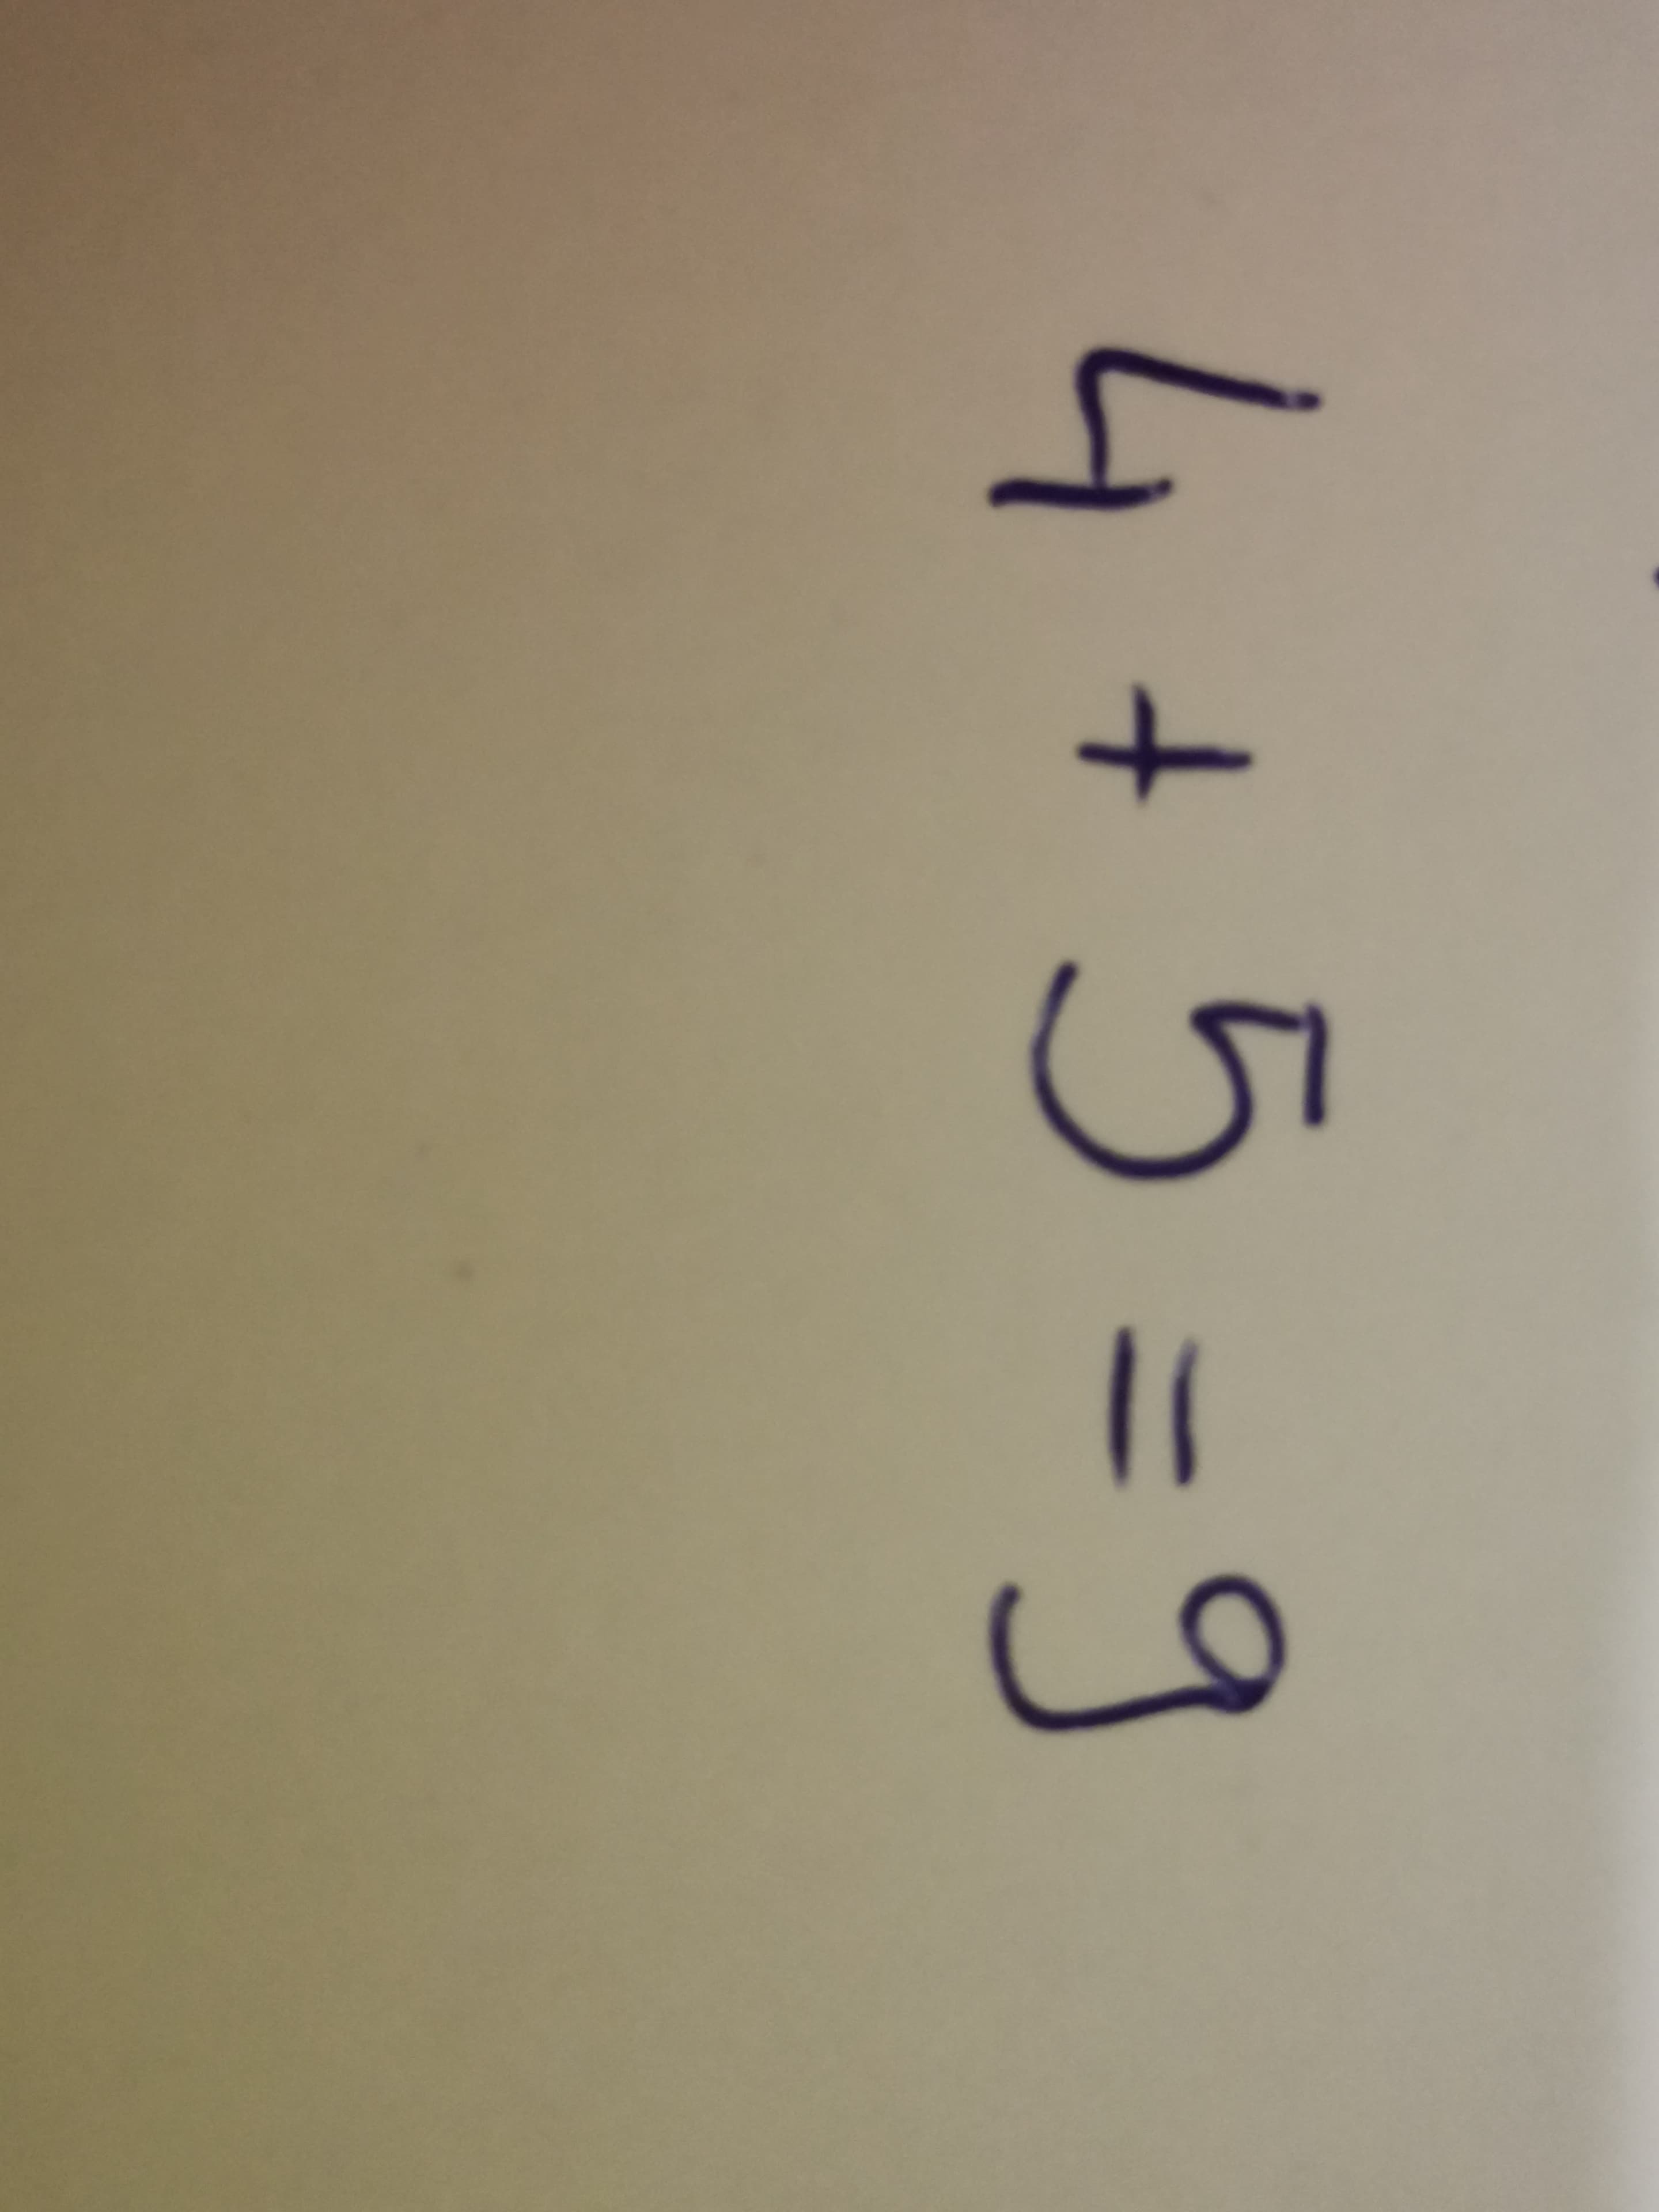 4 + 5 = 9